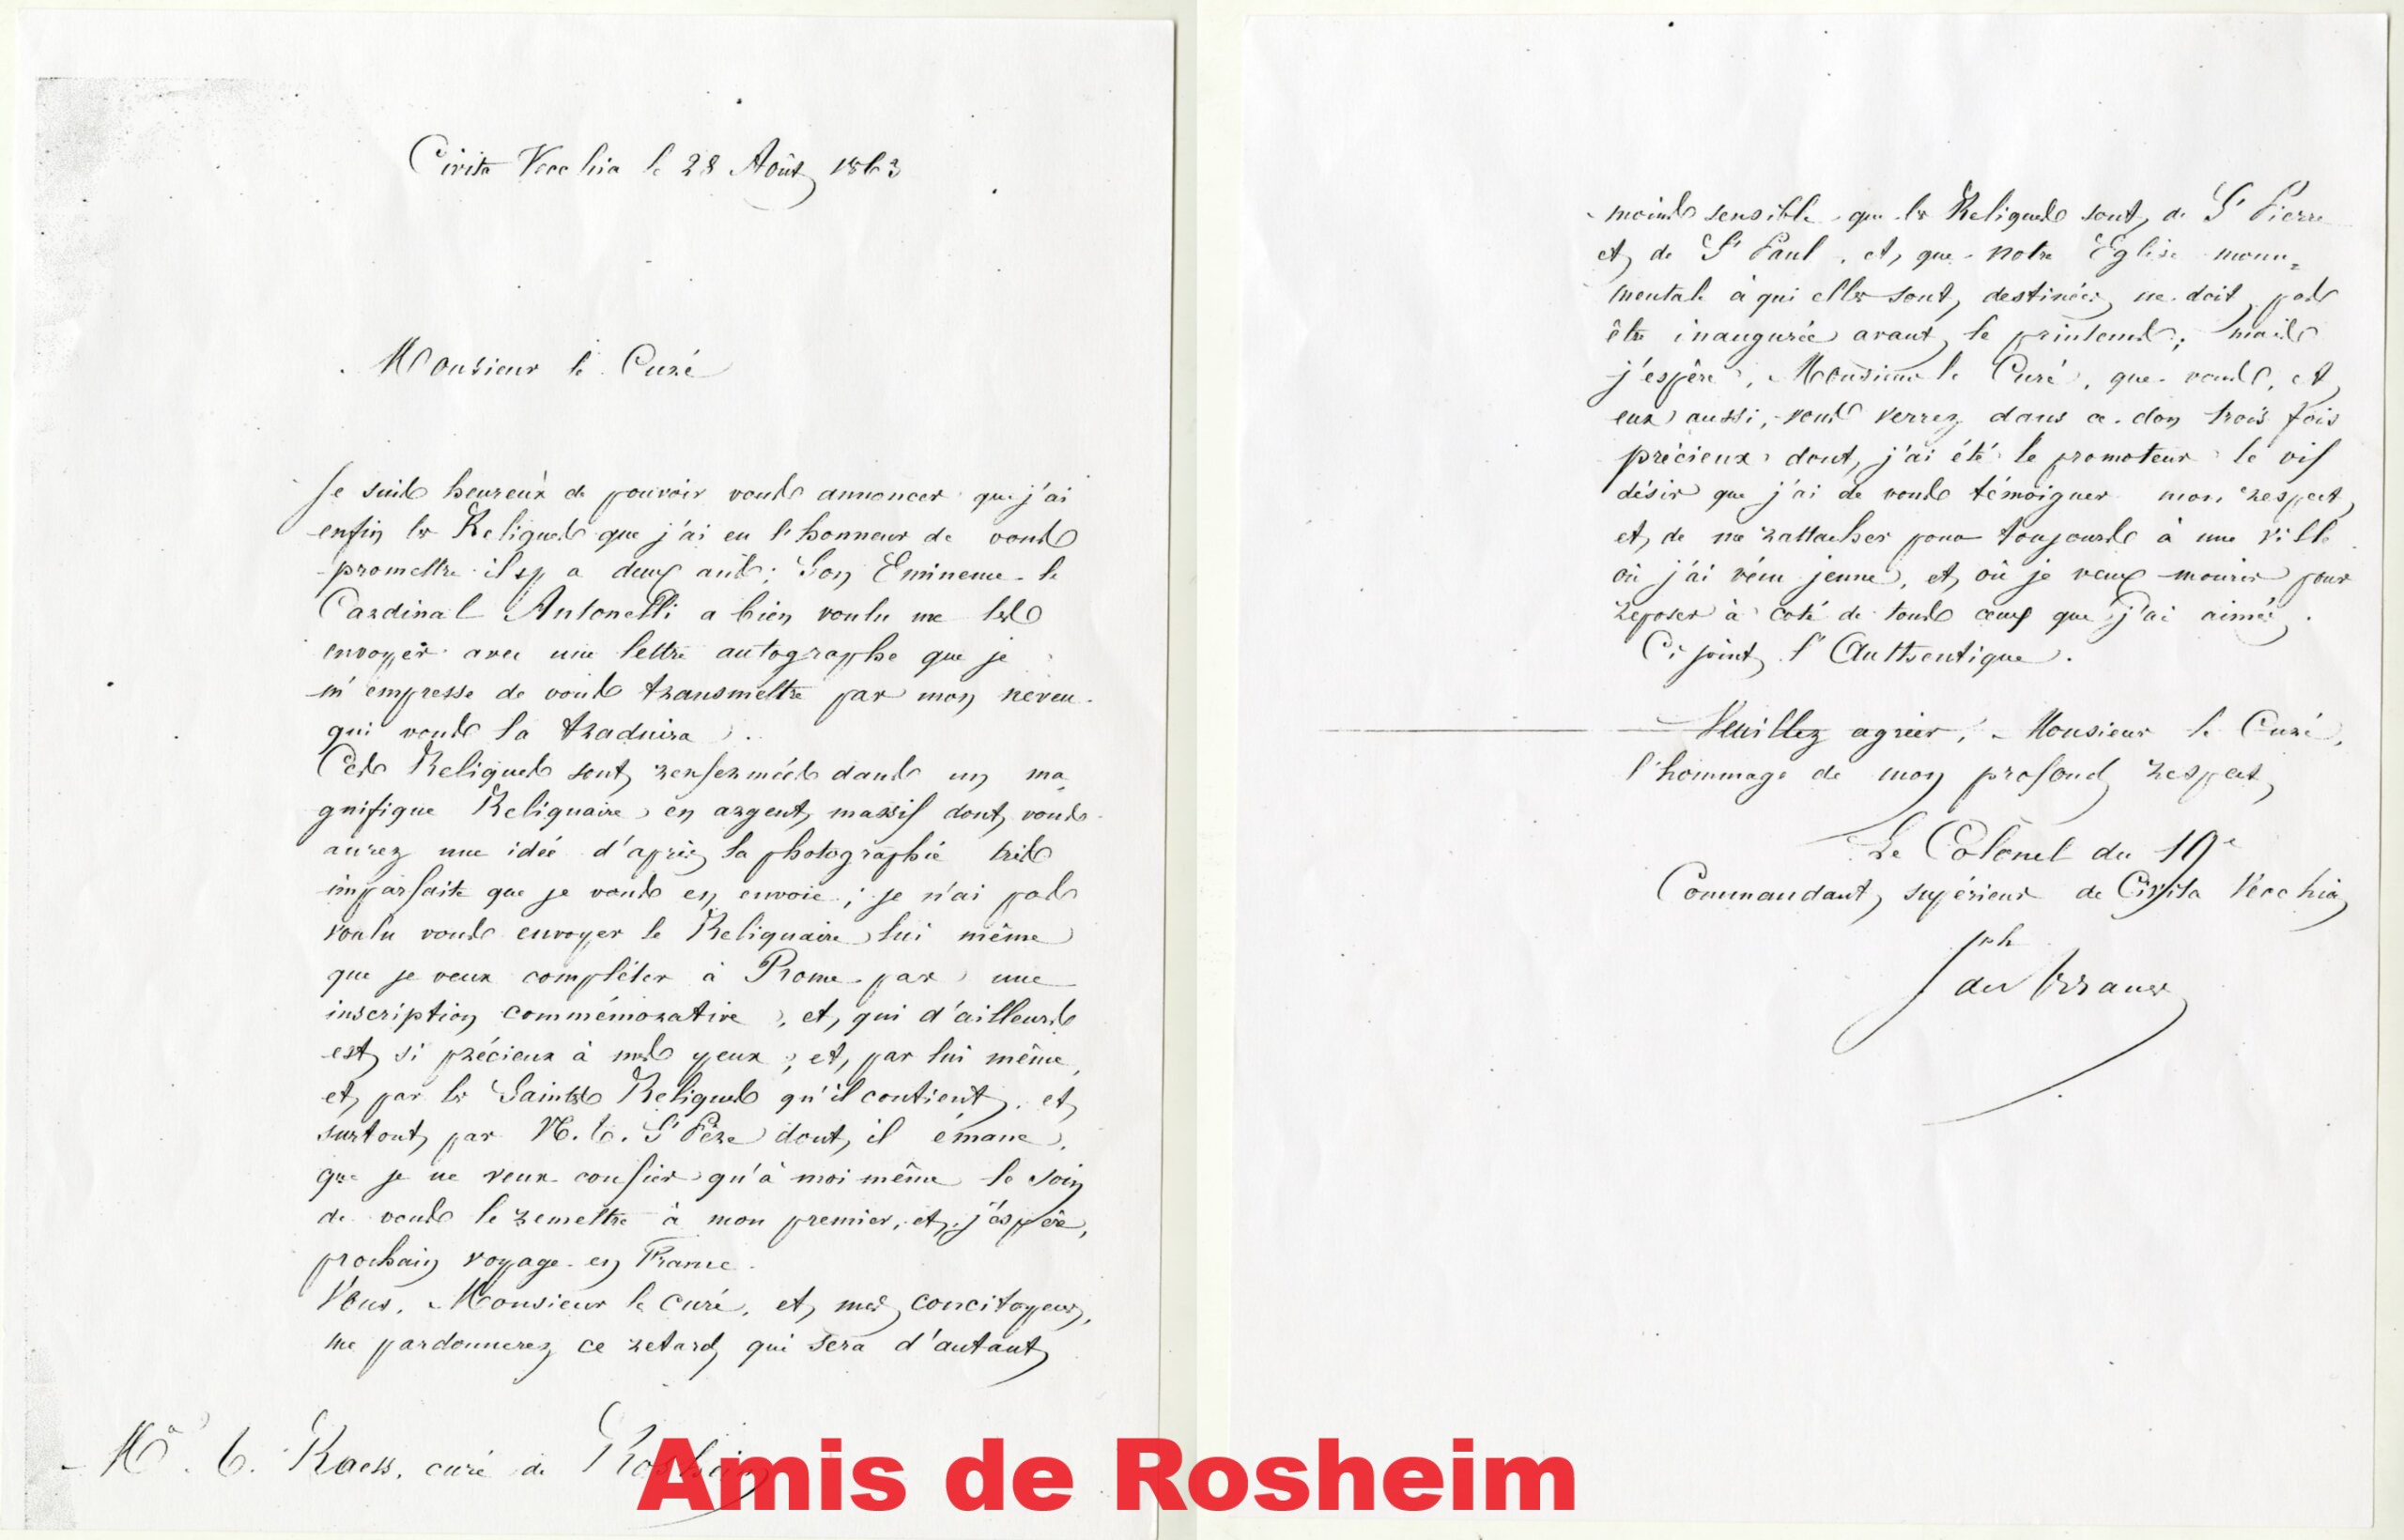 Civita Vecchia le 28 Août 1863
Monsieur le Curé
Je suis heureux de pouvoir vous annoncer que j'ai
enfin les Reliques que j'ai eu l'honneur de vous
promettre il y a deux ans ; Son Eminence le
Cardinal Antonelli a bien voulu me les
envoyer avec une lettre autographe que je
m'empresse de vous transmettre par mon neveu
qui vous la traduira.
Ces Reliques sont renfermées dans un ma=
gnifique Reliquaire en argent massif dont vous
aurez une idée d'après la photographie très
imparfaite que je vous en envoie ; je n'ai pas
voulu vous envoyer le Reliquaire lui même
que je veux compléter à Rome par une
inscription commémorative, et qui d'ailleurs
est si précieux à mes yeux ; et par lui même,
et par les Saintes Reliques qu'il contient, et
surtout par N. T. St Père dont il émane,
que je ne veux confier qu'à moi même le soin
de vous le remettre à mon premier, et, j'espère,
prochain voyage en France.
Vous, Monsieur le curé, et mes concitoyens,
me pardonnerez ce retard qui sera d'autant
Mr. T. Raess, curé de Rosheim
moins sensible que les Reliques sont de St Pierre
et de St Paul, et que notre Eglise monu=
mentale à qui elles sont destinées ne doit pas
être inaugurée avant le printems ; mais
j'espère, Monsieur le Curé, que vous, et
eux aussi, vous verrez dans ce don trois fois
précieux dont j'ai été le promoteur le vif
désir que j'ai de vous témoigner mon respect
et de me rattacher pour toujours à une ville
où j'ai vécu jeune, et où je veux mourir pour
reposer à coté de tous ceux que j'ai aimés.
Ci joint l'Authentique.
Veuillez agréer, Monsieur le Curé,
l'hommage de mon profond respect
Le Colonel du 19e
Commandant supérieur de Civita Vecchia
Jph
Amis de Rosheim